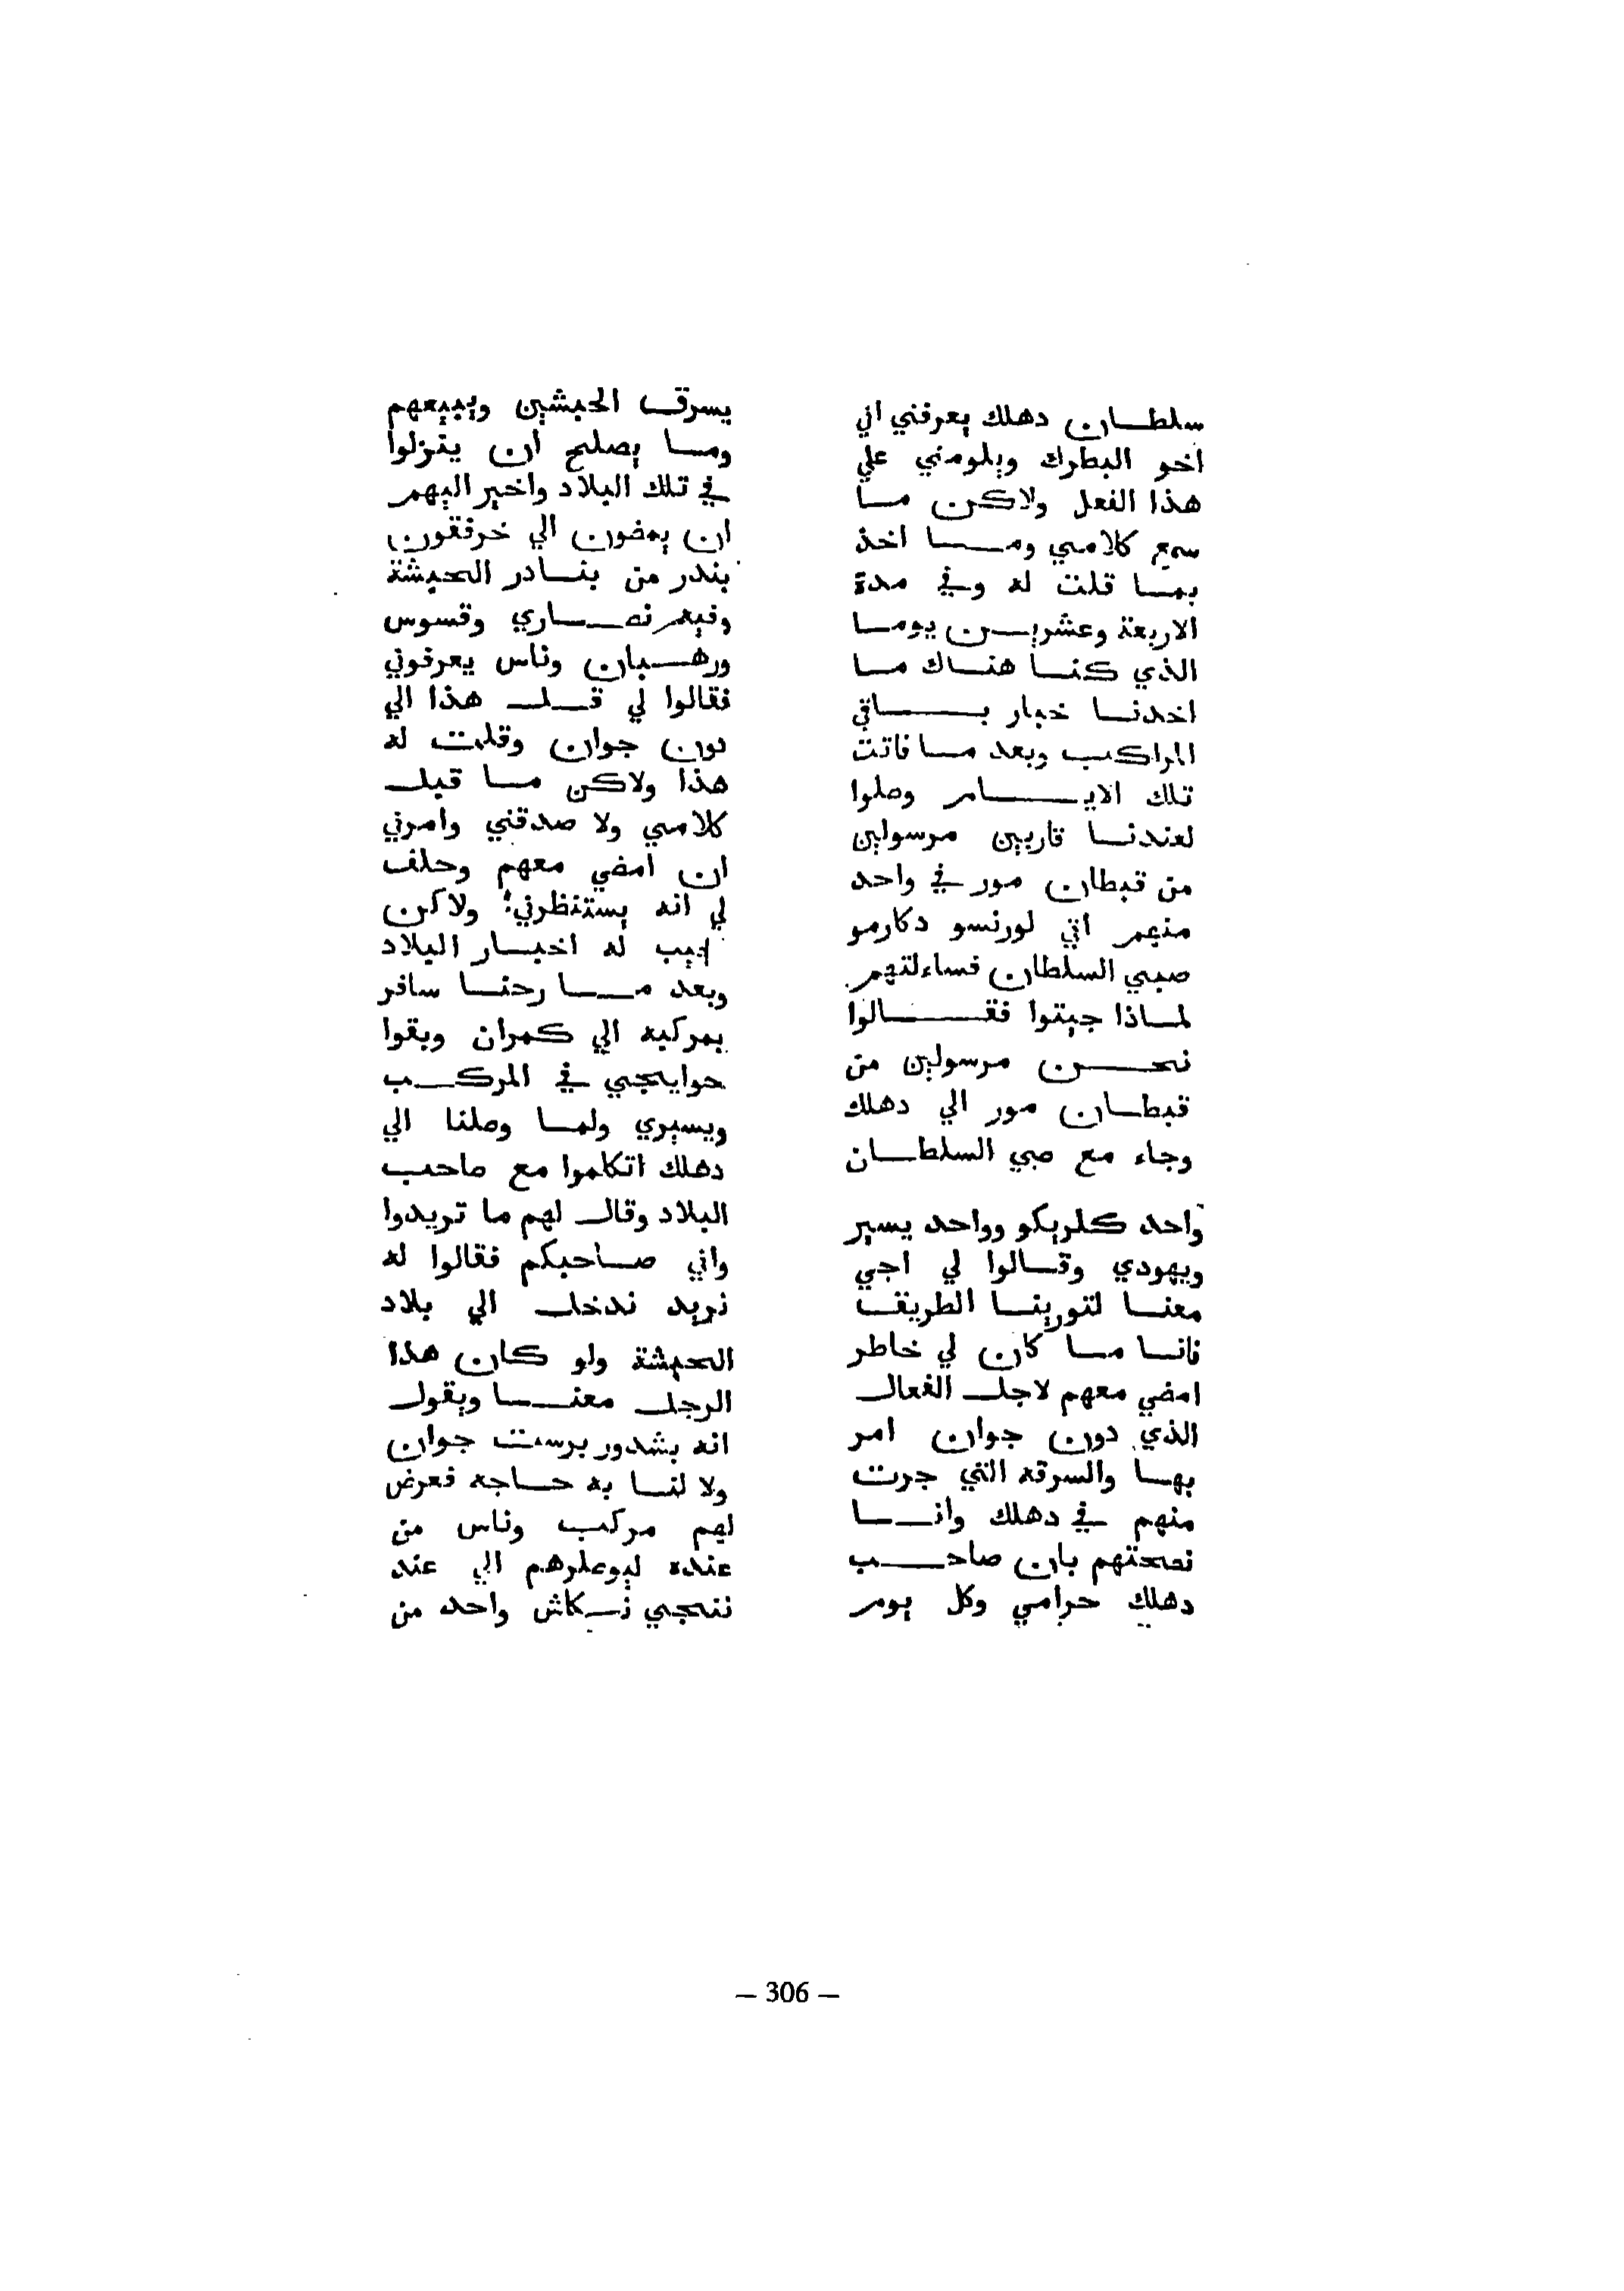 سلطان دهلك يعرفني اني
اخو البطرك ويلومني علي
هذا الفعل ولاكن ما
سمع كلامي وما اخذ
بما قلت له وفي مدة
الاربعة وعشرين يوما
الذي كنا هناك ما
اخدنا خبار باقي
المراكب وبعد ما فاتت
تلك الايام وصلوا
لعندنا قاربين مرسولين
من قبطان مور في واحد
منهم اتي لورنسو دكارمو
صبي السلطان فساءلتهم
لماذا جيتوا فقالوا
نحن مرسولين من
قبطان مور الي دهلك
وجاء مع صبي السلطان
واحد كلريكو وواحد يسير
ويهودي وقالوا لي اجي
معنا لتورينا الطريق
فانا ما كان لي خاطر
امضي معهم لاجل الفعال
الذي دون جوان امر
بها والسرقه التي جرت
منهم في دهلك وانا
نصحتهم بان صاحب
دهلك حرامي وكل يوم
يسرق الحبشين ويبيعهم
وما يصلح ان ينزلوا
في تلك البلاد واخير اليهم
ان يمضون الي خرفقون
بندر من بنادر الحبشة
وفيهم نصاري وقسوس
ورهبان وناس يعرفوني
فقالوا لي قل هذا الي
دون جوان وقلت له
هذا ولاكن ما قبل
كلامي ولا صدقني وامرني
ان امضي معهم وحلف
لي انه يستنظرني؛ ولاكن
اجيب له اخبار البلاد
وبعد ما رحنا سافر
بمركبه الي كمران وبقوا
حوايجي في المركب
ويسيري ولما وصلنا الي
دهلك اتكلموا مع صاحب
البلاد وقال لهم ما تريدوا
واني صاحبكم فقالوا له
نريد ندخل الي بلاد
الحبشة ولو كان هذا
الرجل معنا ويقول
انه بشدور برست جوان
ولا لنا به حاجه فعرض
لهم مركب وناس من
عنده ليوصلوهم الي عند
واحد من
— 306 —